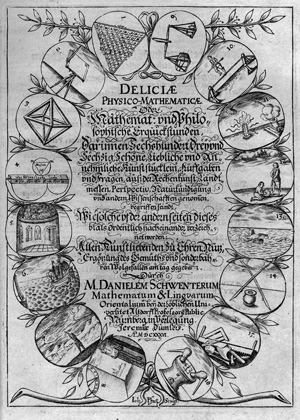 DELICIÆ
PHYSICO-MATHEMATICÆ
Oder
Mathemat: vnd Philo
sophische Erquickstunden,
Darinnen Sechshundert Dreyvnd
Sechsig, Schöne, Liebliche vnd An
nehmliche Kunststücklein, Auffgaben
vnd Fragen, auß der Rechenkunst, Landt
messen, Perspectiv, Naturkündigung
vnd andern Wissenschafften genomen,
begriffen seindt,
Wie solche vf der andern seiten dieses
blats Ordentlich nacheinander verzeich
net worden.
Allen Kunstliebenden zu Ehren, Nutz,
Ergötzung des Gemüths vnd sonderbah
ren Wolgefallen am tag gegeben
Durch
M. DANIELEM SCHWENTERUM
Mathematum & Linguarum
Orientalium bey der löblichen Uni-
versitet Altdorff Professorem Public.
Nürnberg, in Verlegung
Jeremiæ Dümlers.
MDCXXXVI.